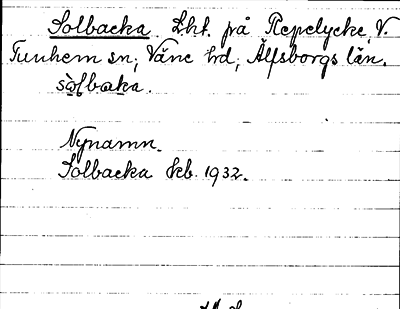 Solbacka. Lht. på Repelycke, V.
Tunhem sn, Väne hd, Älfsborgs län.
sòlbaka.
Nynamn.
Solbacka kb. 1932.